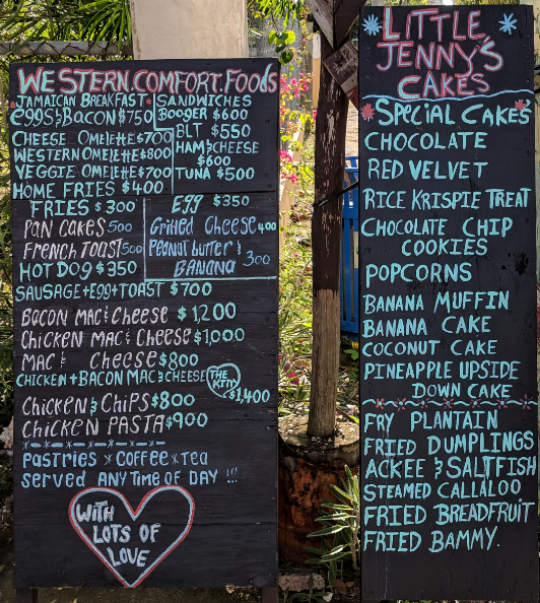 WESTERN.COMFORT.FOODS
JAMAICAN BREAKFAST
EGGS & BACON $750
CHEESE OMELETTE $700
WESTERN OMELETTE $800
VEGGIE OMELETTE $700
HOME FRIES $400
SANDWICHES
BOOGER $600
BLT $550
HAM & CHEESE
$600
TUNA $500
FRIES $300
PAN CAKES 500
FRENCH TOAST 500
HOT DOG $350
EGG $350
GRILLED CHEESE 400
PEANUT BUTTER &
BANANA 300
SAUSAGE+EGG+TOAST $700
BACON MAC & CHEESE $1,200
CHICKEN MAC & CHEESE $1,000
MAC & CHEESE $800
CHICKEN + BACON MAC & CHEESE THE KITTY $1,400
CHICKEN & CHIPS $800
CHICKEN PASTA $900
PASTRIES x COFFEE x TEA
SERVED ANY TIME OF DAY !!!
WITH
LOTS OF
LOVE
LITTLE
JENNY'S
CAKES
SPECIAL CAKES
CHOCOLATE
RED VELVET
RICE KRISPIE TREAT
CHOCOLATE CHIP
COOKIES
POPCORNS
BANANA MUFFIN
BANANA CAKE
COCONUT CAKE
PINEAPPLE UPSIDE
DOWN CAKE
FRY PLANTAIN
FRIED DUMPLINGS
ACKEE & SALTFISH
STEAMED CALLALOO
FRIED BREADFRUIT
FRIED BAMMY.